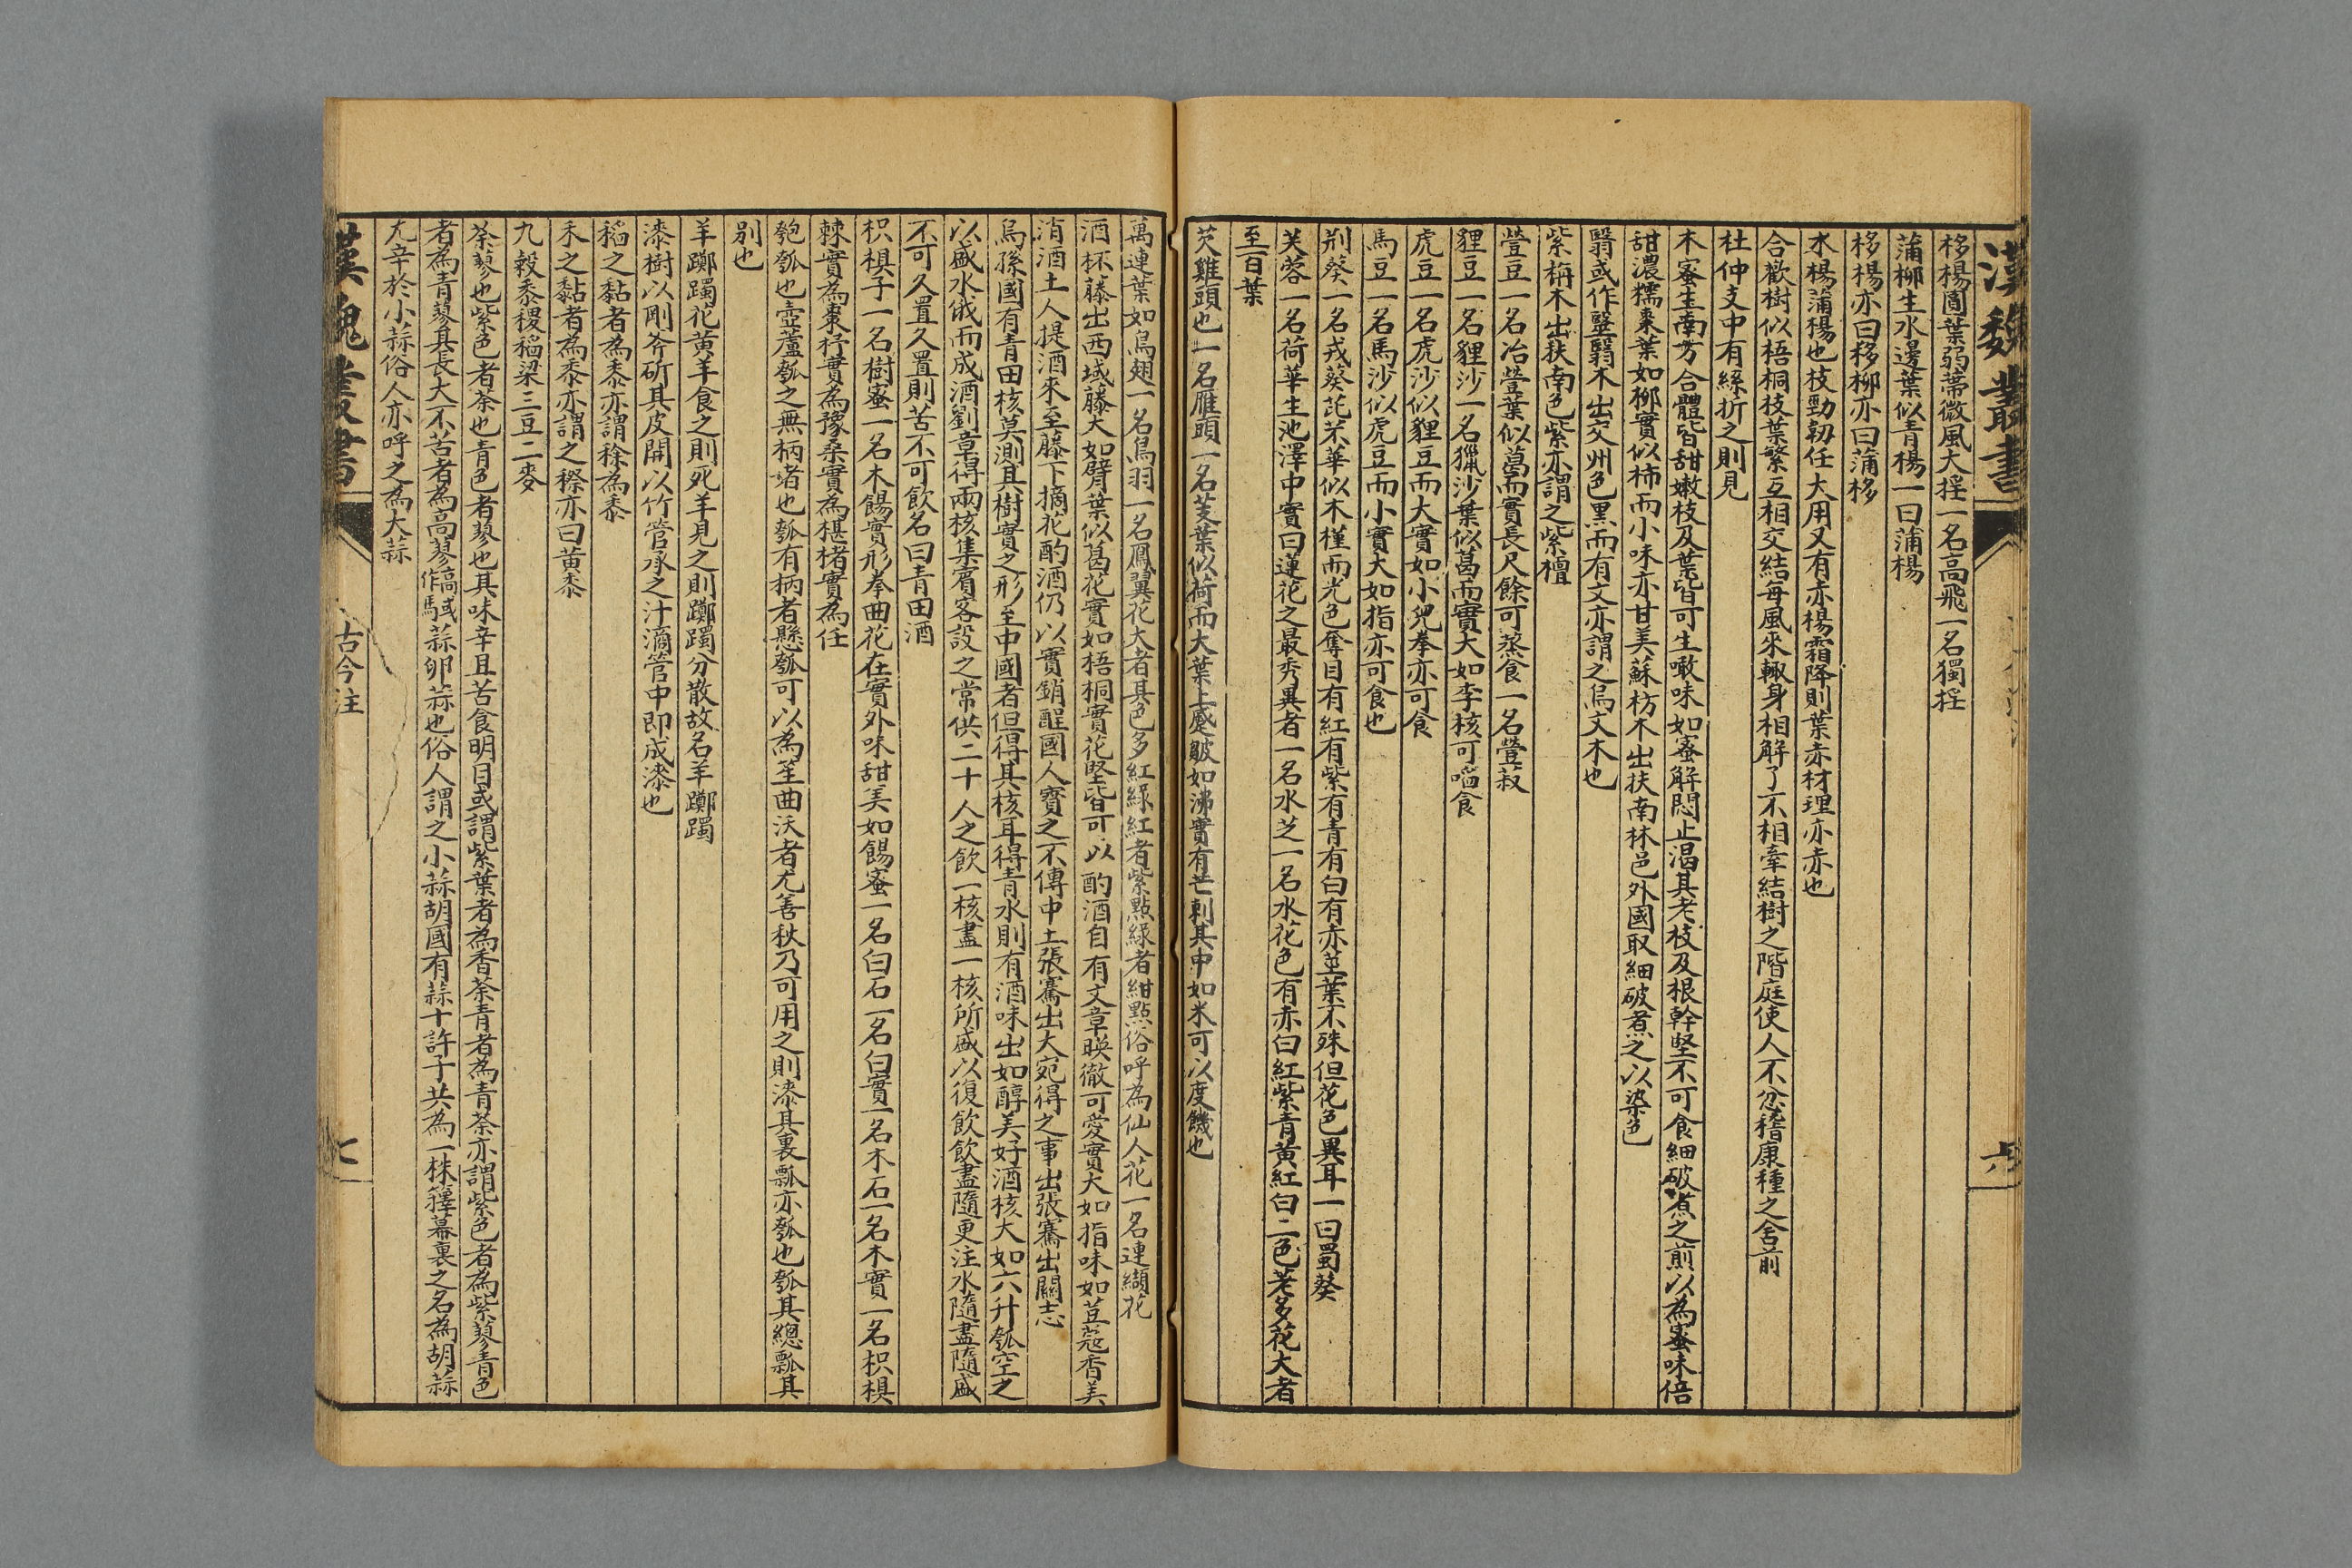 漢魏叢書
六
栘楊圓葉弱蔕微風大揺一名高飛一名獨揺
蒲柳生水邊葉似青楊一曰蒲楊
栘楊亦曰栘柳亦曰蒲栘
水楊蒲楊也枝勁韌任大用又有赤楊霜降則葉赤材理亦赤也
合歡樹似梧桐枝葉繁互相交結每風來輙身相解了不相牽結樹之階庭使人不忿稽康種之舍前
杜仲支中有絲折之則見
木蜜生南方合體皆甜嫩枝及葉皆可生噉味如蜜解悶止渴其老枝及根幹堅不可食細破煮之煎以為蜜味倍
甜濃糯棗葉如柳實似柿而小味亦甘美蘇枋木出扶南林邑外國取細破煮之以染色
翳或作瑿翳木出交州色黑而有文亦謂之烏文木也
紫栴木出扶南色紫亦謂之紫檀
蓥豆一名治蓥葉似葛而實長尺餘可蒸食一名蓥菽
貍豆一名貍沙一名獵沙葉似葛而實大如李核可啗食
虎豆一名虎沙似貍豆而大實如小兒拳亦可食
馬豆一名馬沙似虎豆而小實大如指亦可食也
荆葵一名戎葵芘芣華似木槿而光色奪目有紅有紫有青有白有赤莖葉不殊但花色異耳一曰蜀葵
芙蓉一名荷華生池澤中實曰蓮花之最秀異者一名水芝一名水花色有赤白紅紫青黃紅白二色荖多花大者
至百葉
芡雞頭也一名雁頭一名芰葉似荷而大葉上蹙皺如沸實有芒刺其中如米可以度饑也
萬連葉如鳥翅一名鳥羽一名鳳翼花大者其色多紅綠紅者紫點綠者紺點俗呼為仙人花一名連纈花
酒杯藤出西域藤大如臂葉似葛花實如梧桐實花堅皆可以酌酒自有文章暎徹可愛實大如指味如荳蔻香美
消酒土人提酒來至藤下摘花酌酒仍以實銷酲國人寳之不傳中土張騫出大宛得之事出張騫出關志
烏孫國有青田核莫測其樹實之形至中國者但得其核耳得青水則有酒味出如醇美好酒核大如六升瓠空之
以盛水俄而成酒劉章得兩核集賓客設之常供二十人之飲一核盡一核所盛以復飲飲盡隨更注水隨盡隨盛
不可久置久置則苦不可飲名曰青田酒
枳椇子一名樹蜜一名木餳實形拳曲花在實外味甜美如餳蜜一名白石一名白實一名木石一名木實一名枳椇
棘實為棗杼實為豫桑實為椹楮實為任
匏瓠也壺蘆瓠之無柄者也瓠有柄者懸瓠可以為笙曲沃者尤善秋乃可用之則漆其裏瓢亦瓠也瓠其總瓢其
別也
羊躑躅花黃羊食之則死羊見之則躑躅分散故名羊躑躅
漆樹以剛斧斫其皮開以竹管承之汁滴管中即成漆也
稻之黏者為黍亦謂稌為黍
禾之黏者為黍亦謂之穄亦曰黃黍
九穀黍稷稻粱三豆二麥
荼蓼也紫色者荼也青色者蓼也其味辛且苦食明目或謂紫葉者為香荼青者為青荼亦謂紫色者為紫蓼青色
者為青蓼其長大不苦者為高蓼高或作馬蒜卵蒜也俗人謂之小蒜胡國有蒜十許子共為一株籜幕裏之名為胡蒜
尤辛於小蒜俗人亦呼之為大蒜
漢魏叢書
古今注
七